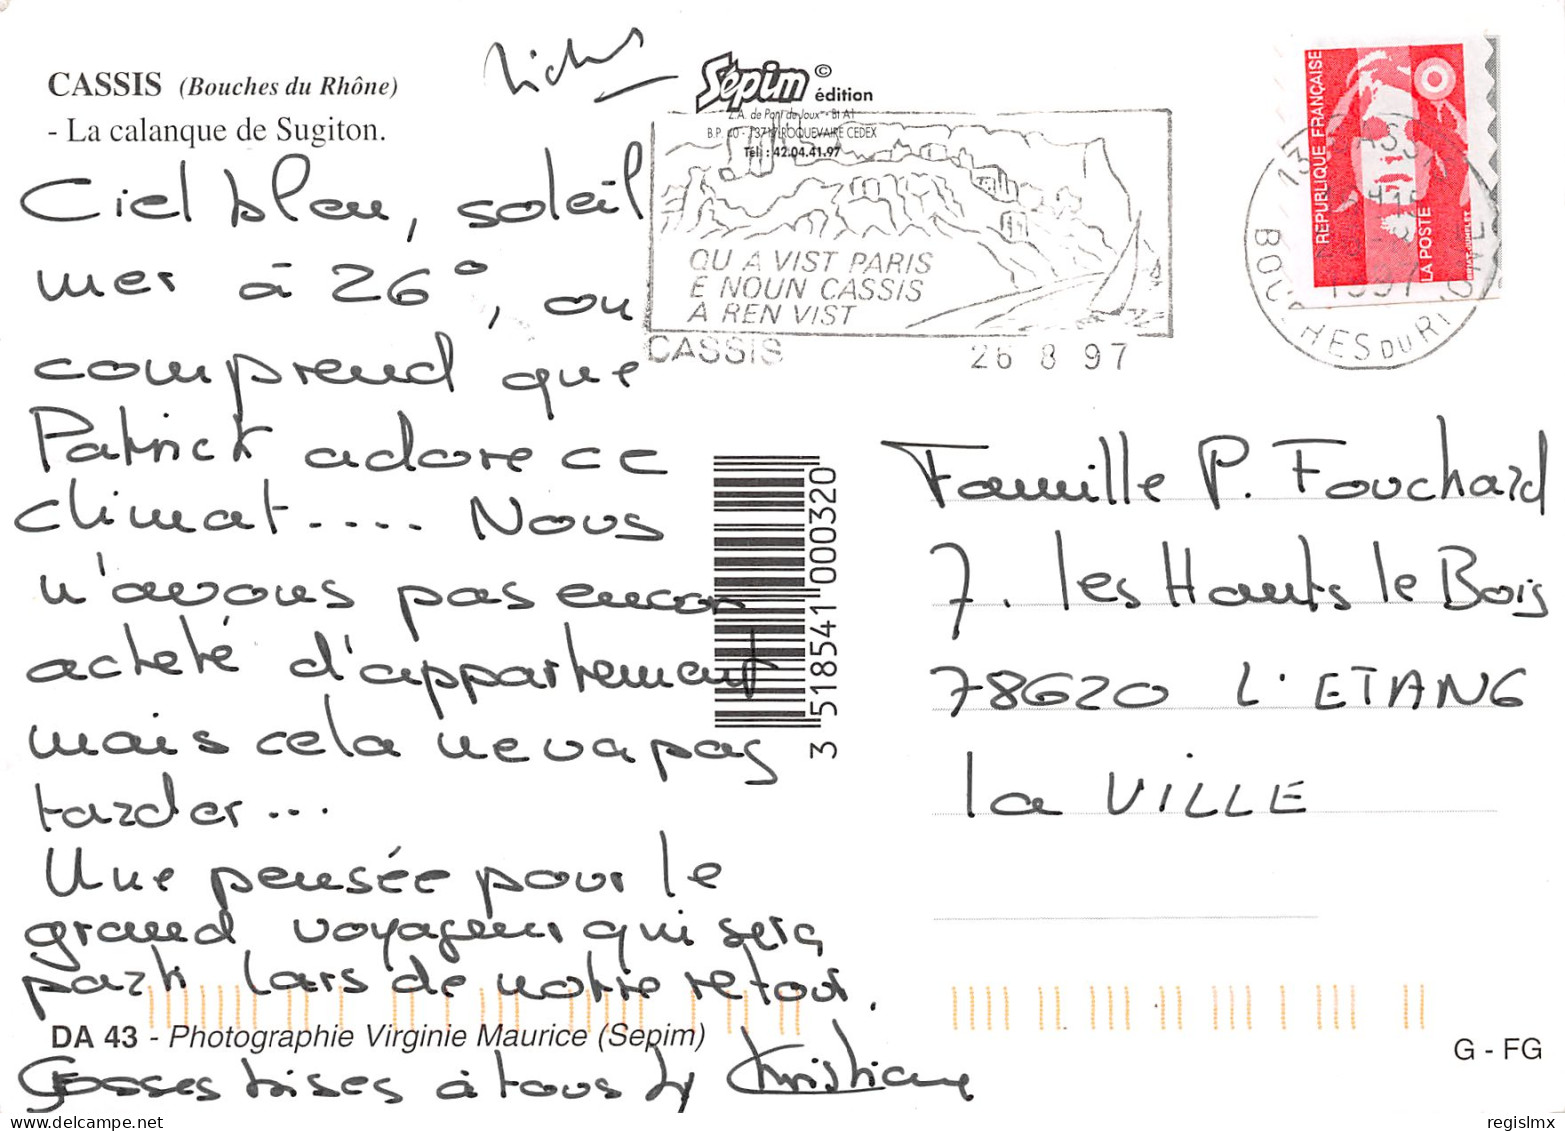 CASSIS (Bouches du Rhône)
- La calanque de Sugiton.
Ciel bleu, soleil
mer à 26°, on
comprend que
Patrick adore ce
climat.... Nous
n'avons pas encor
acheté d'appartement
mais cela ne va pas
tarder...
Une pensée pour le
grand voyageur qui sera
parti lors de notre retour.
DA 43 - Photographie Virginie Maurice (Sepim)
Grosses bises à tous Christiane
Sepim © édition
Z.A. de Pont de Joux - Bt A1
B.P. 40 - 13717 ROQUEVAIRE CEDEX
Tél : 42.04.41.97
QU A VIST PARIS
E NOUN CASSIS
A REN VIST
CASSIS 26 8 97
RÉPUBLIQUE FRANÇAISE
LA POSTE
13 CASSIS
1997
BOUCHES DU RHONE
3 518541 000320
Famille P. Fouchard
7. les Hauts le Bois
78620 L'ETANG
la VILLE
G - FG
regislmx